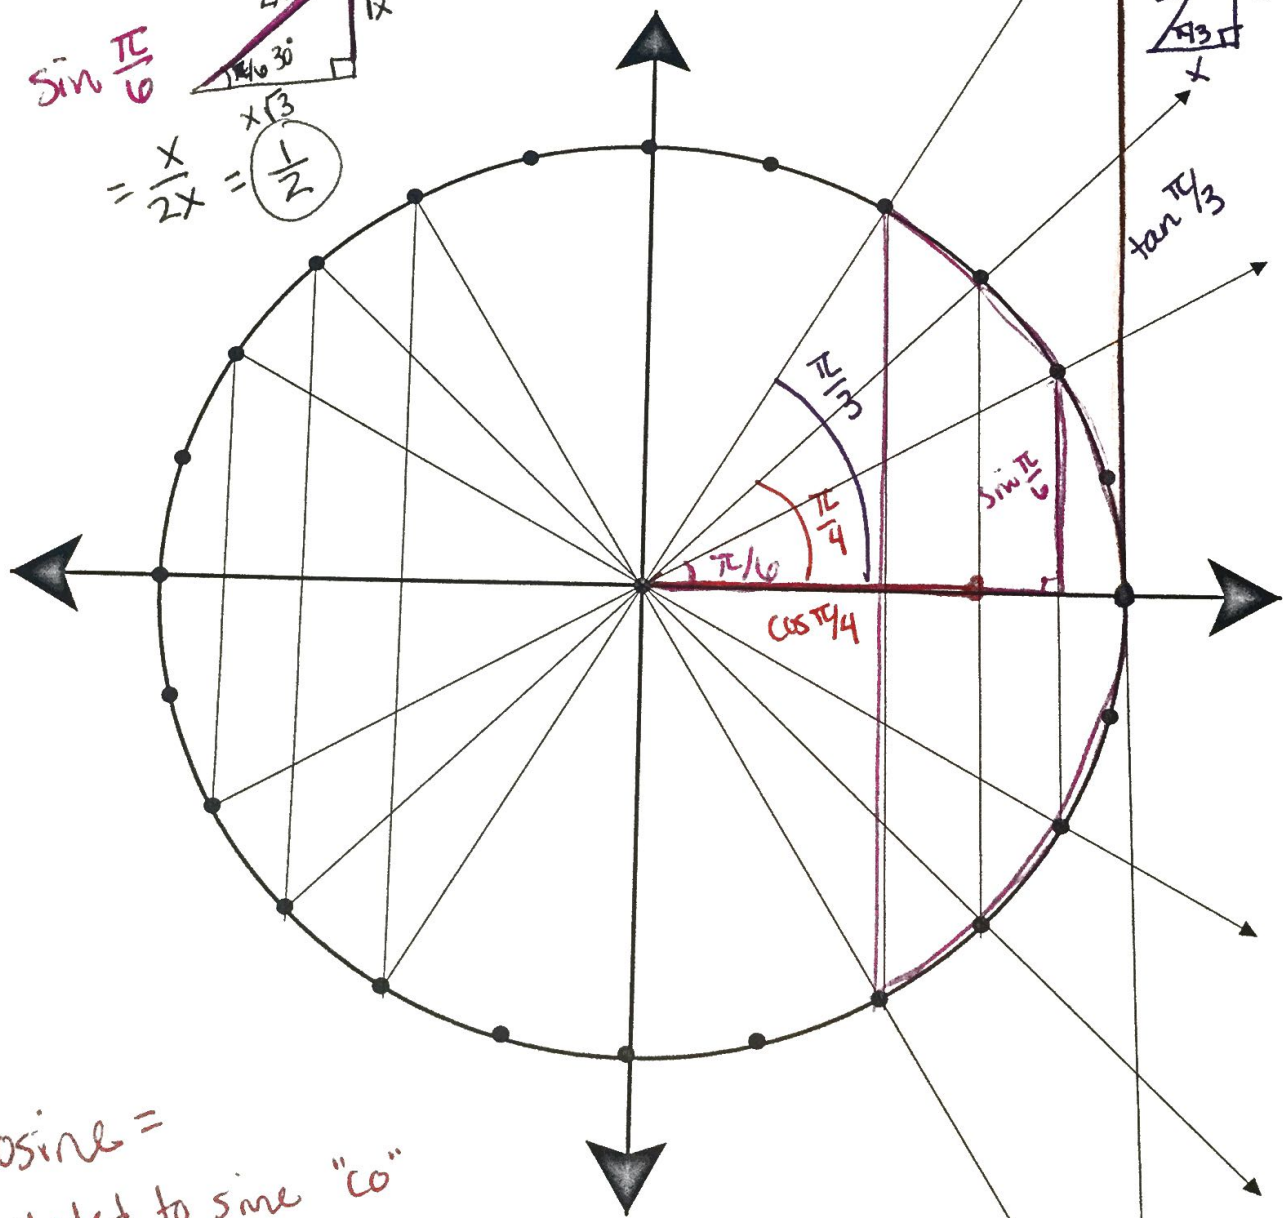 1x
sin π/6
π/6 30°
x√3
= x/2x = 1/2
π/3
x
tan π/3
π/3
π/4
sin π/6
π/6
cos π/4
osine =
to sine "co"